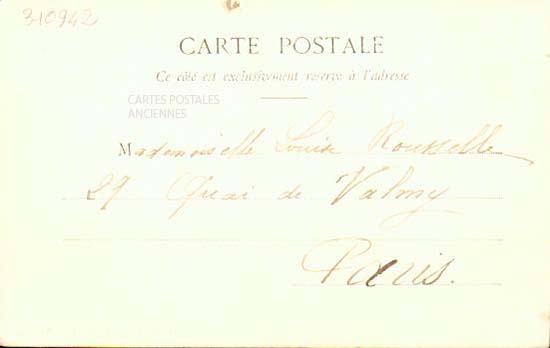 310942
CARTE POSTALE
Ce côté est exclusivement réservé à l'adresse
CARTES POSTALES
ANCIENNES
Mademoiselle Louise Rousselle
29 Quai de Valmy
Paris.